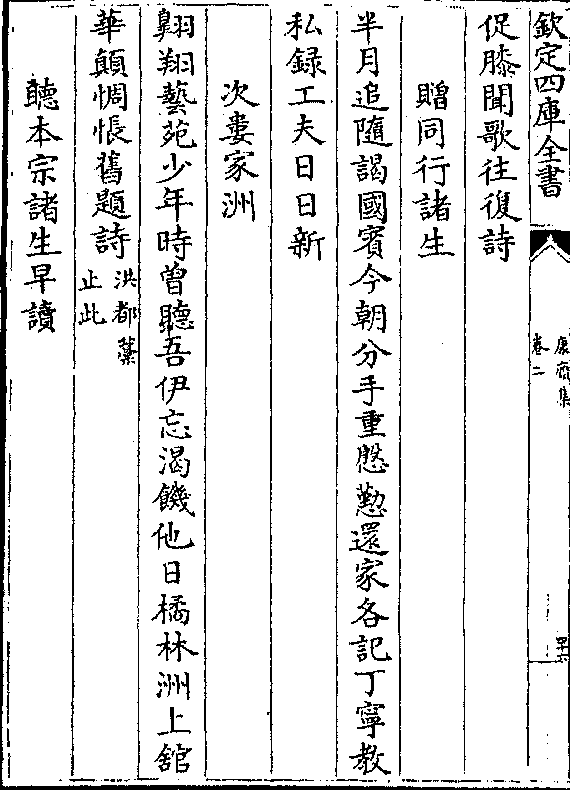 欽定四庫全書
康齋集
卷二
促膝聞歌往復詩
贈同行諸生
半月追隨謁國賓今朝分手重慇懃還家各記丁寧教
私録工夫日日新
次婁家洲
翺翔藝苑少年時曾聽吾伊忘渴饑他日橘林洲上舘
華顛惆悵舊題詩洪都藁
止此
聽本宗諸生早讀